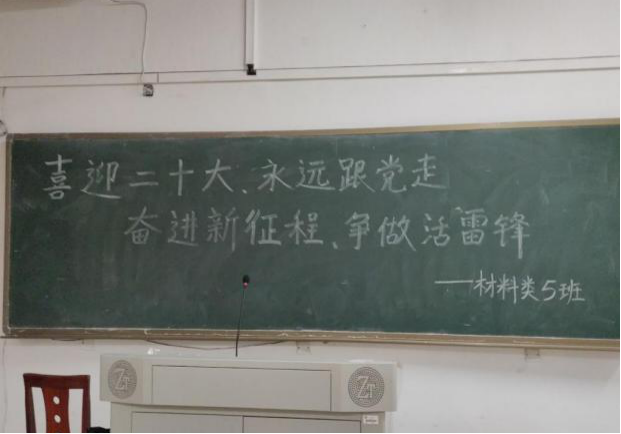 喜迎二十大、永远跟党走
奋进新征程、争做活雷锋
——材料类5班
ZT
ZT